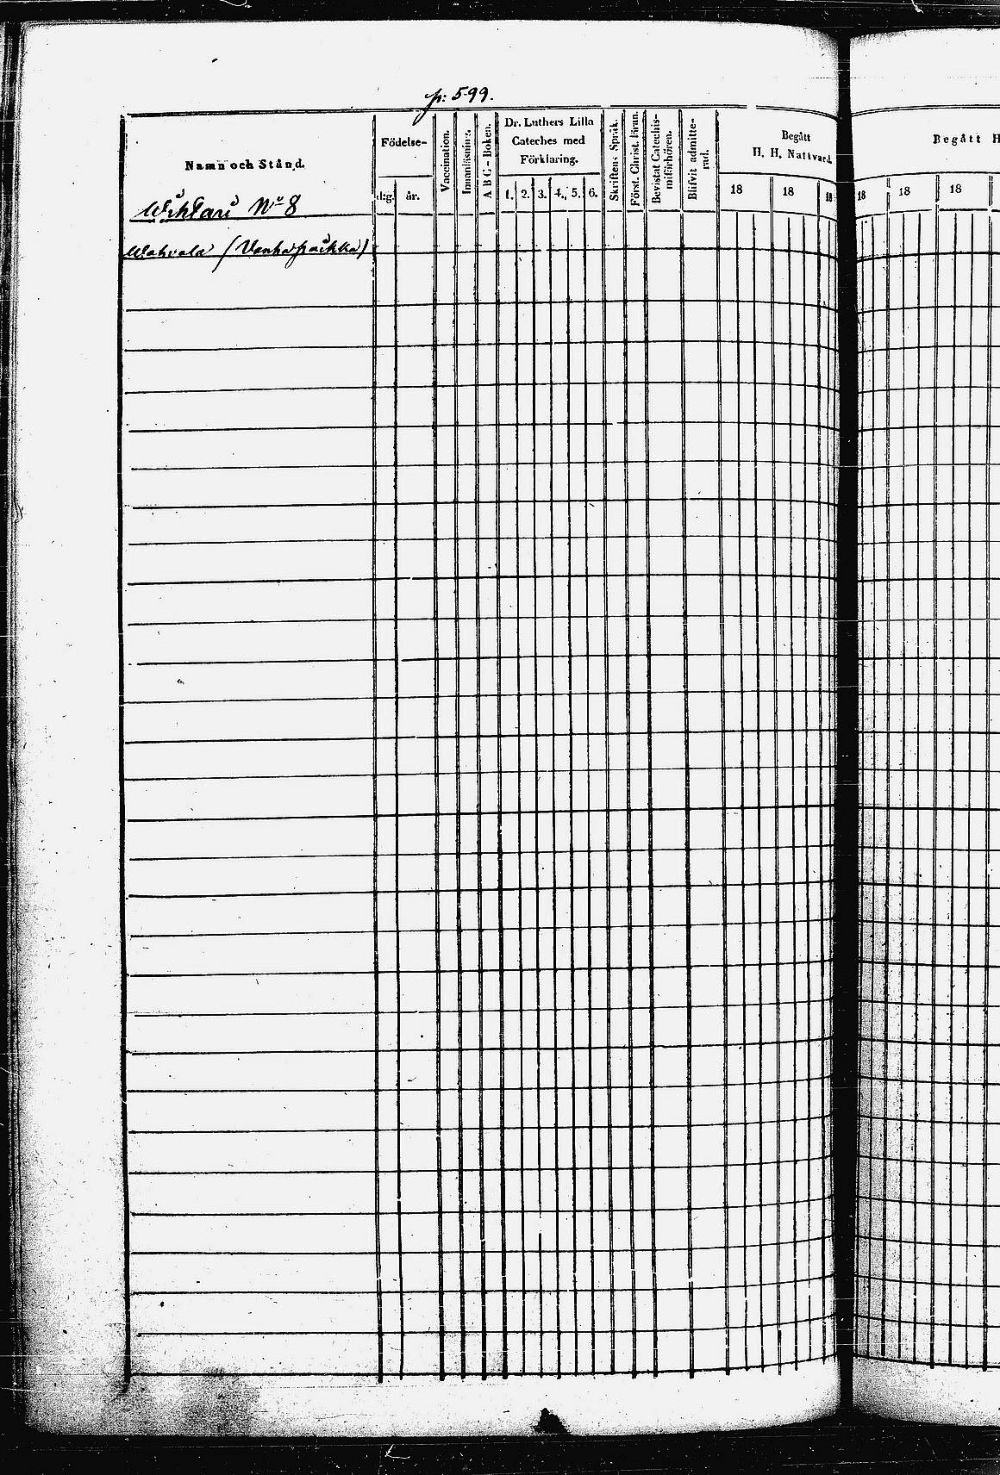 p: 599.
Namn och Stånd.
Födelse-
dag. år.
Vaccination.
Innanläsning.
A B C - Boken.
Dr. Luthers Lilla
Cateches med
Förklaring.
1. 2. 3. 4. 5. 6.
Skriftens Språk.
Först. Christ. läran.
Bevistat Catechis-
miförhören.
Blifvit admitte-
rad.
Begått
H. H. Nattvard.
18 18 18
Begått H
18 18 18
Wihtari No 8
Wahvala (Vanhapaikka)